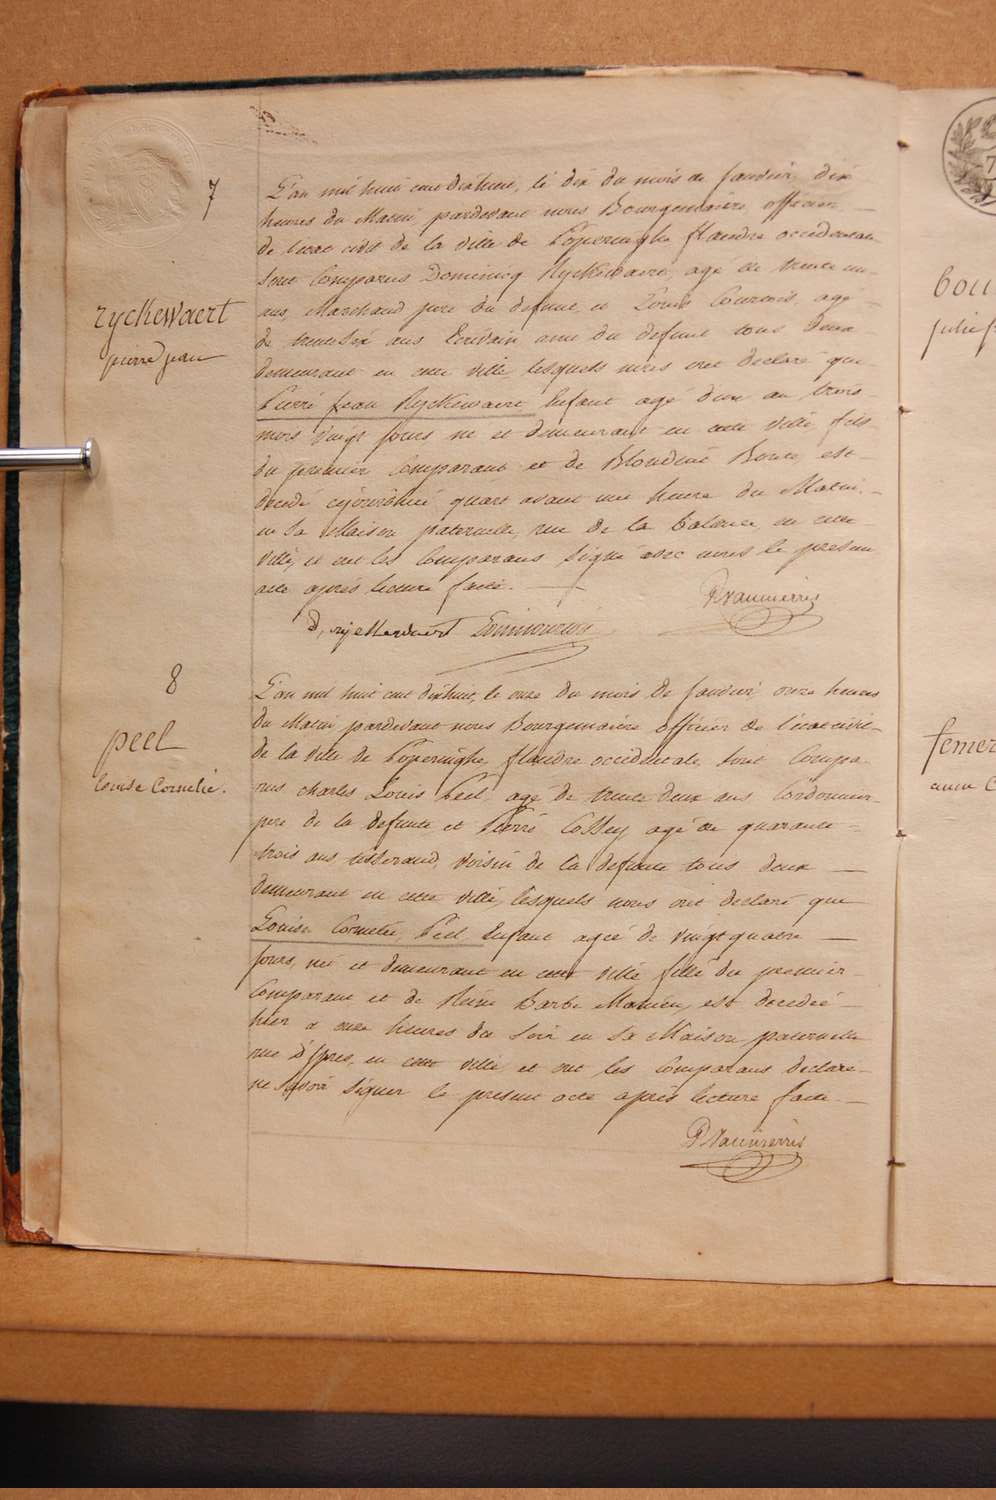 7
L'an mil huit cent dixhuit, le dix du mois de Janvier, dix
heures du Matin pardevant nous Bourguemaitre, officier
de l'etat civil de la ville de Poperinghe flandre occidentale
sont Comparus Dominicq Ryckewaert, agé de trente un
ans, Marchand pere du defunt, et Louis Courtois, agé
de trentesix ans Ecrivain ami du defunt tous deux
demeurant en cette ville lesquels nous ont declaré que
Pierre Jean Ryckewaert Enfant agé d'un an trois
mois vingt jours né et demeurant en cette ville fils
du premier Comparant et de Blondine est
decedé cejourdhui quart avant une heure du Matin,
en sa Maison paternelle, rue de la balance, en cette
ville, et ont les Comparans signé avec nous le present
acte après lecture faite.
ryckewaert
pierre jean
D, ryckewaert
8
L'an mil huit cent dixhuit, le onze du mois de Janvier onze heures
du Matin, pardevant nous Bourguemaitre officier de l'etat civil
de la ville de Poperinghe, flandre occidentale, sont Compa-
rus charles Louis Peel, agé de trente deux ans Cordonnier
pere de la defunte et Pierre Cossey agé de quarante
trois ans tisserand, voisin de la defunte tous deux
demeurant en cette ville, lesquels nous ont declaré que
Louise Cornelie, Peel, Enfant agée de vingt quatre
jours, née et demeurant en cette ville fille du premier
Comparant et de Reine Barbe est decedée
hier a onze heures du soir en sa Maison paternelle
rue d'Ypres, en cette ville, et ont les Comparans declaré
ne savoir signer le present acte après lecture faite
peel
Louise Cornelie.